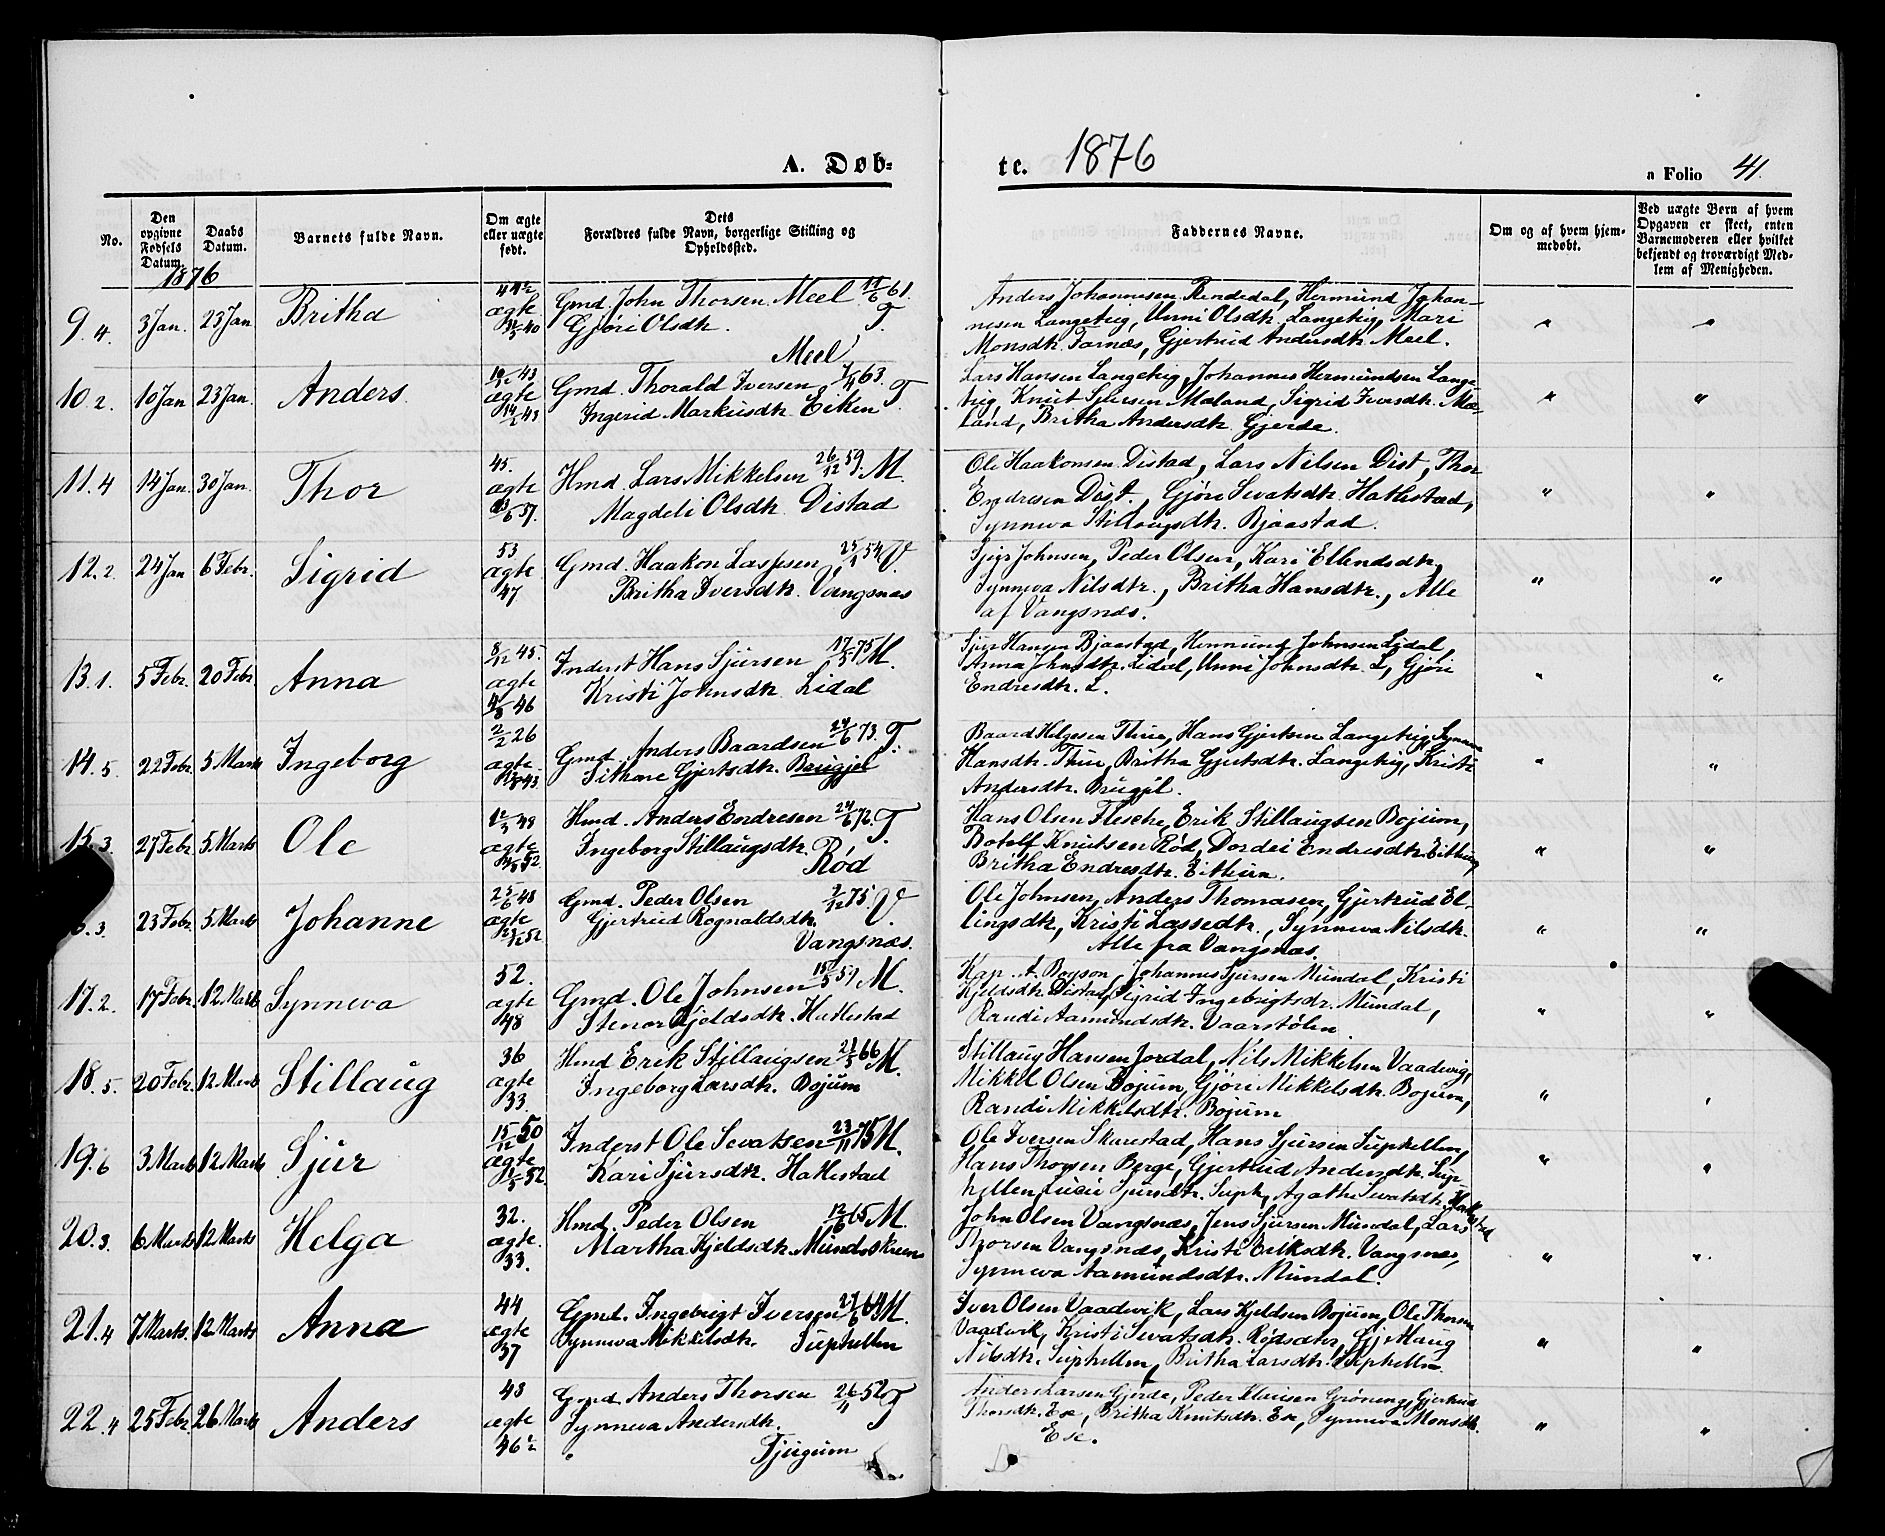 A. Døb-
te. 1876
a Folio 41.
No.
Den opgivne Fødsels Datum.
Daabs Datum.
Barnets fulde Navn.
Om ægte eller uægte født.
Dets Forældres fulde Navn, borgerlige Stilling og Opholdssted.
Faddernes Navne.
Om og af hvem hjemmedøbt.
Ved uægte Børn af hvem Opgaven er skeet, enten Barnemoderen eller hvilket bekjendt og troværdigt Medlem af Menigheden.
1876
9. 4. 3 Jan. 23 Jan Britha ægte Gmd. John Thorsen Meel 61.
Gjøri Olsdtr. T.
Meel
Anders Johannesen Rendedal, Hermund Johan-
nesen Langeteig, Unni Olsdtr. Langeteig, Mari
Monsdtr. Farnæs, Gjertrud Andersdtr. Meel.
10. 2. 10 Jan 23 Jan. Anders. 43 ægte 43 Gmd. Thorald Iversen 63.
Ingerid Markusdtr. Eiken T.
Lars Hansen Langeteig, Johannes Hermundsen Lange-
teig, Knut Sjursen Mæland, Sigrid Iversdtr. Mæ-
land, Britha Andersdtr. Gjerde.
11. 4 14 Jan. 30 Jan. Thor 45. ægte 57. Hmd. Lars Mikkelsen 26/12 59. M.
Magdeli Olsdtr. Distad
Ole Haakonsen Distad, Lars Nilsen Dist, Thor
Endresen Dist., Gjøri Sevatsdtr. Hatlestad,
Synneva Stillaugsdtr. Bjaastad.
12. 2. 24 Jan 6 Febr. Sigrid 53 ægte 47 Gmd. Haakon Lassesen 54 V.
Britha Iversdtr. Vangsnæs
Sjur Johnsen, Peder Olsen, Kari Ellendsdtr,
Synneva Nilsdtr., Britha Hansdtr., Alle
af Vangsnæs.
13. 1. 5 Febr. 20 Febr. Anna 8/12 45. ægte 46 Inderst Hans Sjursen 75 M.
Kristi Johnsdtr. Lidal
Sjur Hansen Bjaastad, Hermund Johnsen Lidal,
Anna Johnsdtr. Lidal, Unni Johnsdtr. L, Gjøri
Endresdtr. L.
14. 5. 22 Febr. 5 Marts Ingeborg 2/2 26 ægte 43 Gmd. Anders Baardsen 24/6 73. T.
Sithane Gjertsdtr. Brugjel
Baard Helgesen Thue, Hans Gjertsen Langeteig, Synneva
Hansdtr. Thue, Britha Gjertsdtr. Langeteig, Kristi
Andersdtr. Brugjel.
15. 3. 27 Febr. 5 Marts Ole 49 ægte 52 Hmd. Anders Endresen 24/6 76. T.
Ingeborg Stillaugsdtr.
Rød
Hans Olsen Flesche, Erik Stillaugsen Bojum,
Botolf Knutsen Rød, Dordei Endresdtr. Eitturn,
Britha Endresdtr. Eitturn.
3. 23 Febr. 5 Marts Johanne 48 ægte 52 Gmd. Peder Olsen 75. V.
Gjertrud Rognaldsdtr.
Vangsnæs.
Ole Johnsen, Anders Thomasen, Gjertrud El-
lingsdtr, Kristi Lassedtr., Synneva Nilsdtr.
Alle fra Vangsnæs.
17. 2. 17 Febr. 12 Marts Synneva 52. ægte 48 Gmd. Ole Johnsen M.
Stenor Kjeldsdtr. Hatlestad
Kap. A. Boyson, Johannes Sjursen Mundal, Kristi
Kjeldsdtr. Distad, Sigrid Ingebrigtsdr. Mundal,
Randi Aamundsdtr. Vaarstølen
18. 5. 20 Febr. 12 Marts Stillaug 36 ægte 33. Hmd Erik Stillaugsen 21/5 66 M.
Ingeborg Larsdtr. Bojum
Stillaug Hansen Jordal, Nils Mikkelsen Vaadevig,
Mikkel Olsen Bojum, Gjøri Mikkelsdtr. Bojum,
Randi Mikkelsdtr. Bojum
19. 6 3 Marts 12 Marts Sjur 15/12 50 ægte 52 Inderst Ole Sevatsen 23/11 75 M.
Kari Sjursdtr. Hatlestad
Ole Iversen Skarestad, Hans Sjursen Suphellen,
Hans Thorsen Berge, Gjertrud Andersdtr. Sup-
hellen, Lucie Sjursdtr. Suph, Agathe Sevatsdtr. Hatlestad
20. 3. 6 Marts 12 Marts Helga 32. ægte. 33. Hmd. Peder Olsen 12/6 65 M.
Martha Kjeldsdtr. Mundalskreen
John Olsen Vangsnæs, Jens Sjursen Mundal, Lars
Thorsen Vangsnæs, Kristi Eriksdtr. Vangsnæs,
Synneva Aamundsdtr. Mundal.
21. 4 7 Marts. 12 Marts Anna 44 ægte 37 Gmd. Ingebrigt Iversen 64 M.
Synneva Mikkelsdtr. Suphellen
Iver Olsen Vaadevik, Lars Kjeldsen Bojum, Ole Thorsen
Vaadevik, Kristi Sevatsdtr. Rødsæter,
Nilsdtr. Suphellen, Britha Larsdtr. Suphellen
22. 4 25 Febr. 26 Marts Anders 43 ægte 46½ Gmd. Anders Thorsen 26/11 52 T
Synneva Andersdtr.
Tjugum
Anders Larsen Gjerde, Peder Klausen Grøning, Gjertrud
Thorsdtr. Ese, Britha Knutsdtr. Ese, Synneva Monsdtr.
Ese.